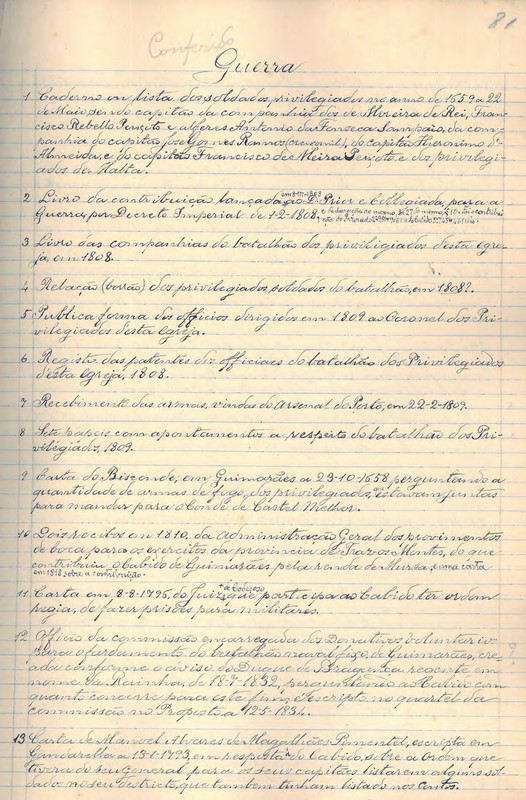 81
Conferido
Guerra
1 Caderno ou lista dos soldados privilegiados no anno de 1659 a 22
de Maio, sendo capitão da companhia dos de Moreira de Rei, Fran-
cisco Rebello Peixoto e alferes Antonio da Fonseca Sampaio, da com-
panhia do capitão José Gomes Ramos, do capitão Hyeronimo d'
Almeida, e do capitão Francisco de Meira Peixoto e dos privilegi-
ados de Malta.
2 Livro da contribuição lançada ao D. Prior e Collegiada, para a
Guerra, por Decreto Imperial de 1-2-1808,
3 Livro das companhias do batalhão dos priviligiados d'esta Egre-
ja, em 1808.
4 Relação (borrão) dos privilegiados, soldados do batalhão, em 1808?.
5 Publica forma dos officios dirigidos em 1809 ao Coronel dos Pri-
vilegiados d'esta Egreja.
6 Registo das patentes dos officiaes do batalhão dos Privilegiados
d'esta Egreja, 1808.
7 Recebimento das armas, vindas do Arsenal do Porto, em 22-2-1809.
8 Sete papeis com apontamentos a respeito do batalhão dos Pri-
vilegiados, 1809.
9 Carta do Bisconde, em Guimarães a 23-10-1658 perguntando a
quantidade de armas de fogo, dos privilegiados, estavam juntas
para mandar para o Conde de Castel Melhor.
10 Dois recibos em 1810, da Administração Geral dos provimentos
de boca para os exercitos da provincia de Traz os Montes, do que
contribuiu o Cabido de Guimarães pela renda de Mursa, e uma carta
em 1818 sobre a contribuição.
11 Carta em 8-8-1795, do Juiz que participa ao Cabido ter ordem
regia, de fazer prisões para militares.
12 Officio da commissão encarregada dos Donativos voluntarios
para o fardamento do batalhão naval fixo, de Guimarães, cre-
ada conforme o aviso do Duque de Bragança regente em
nome da Rainha, de 18-7-1832, perguntando ao Cabido com
quanto concorre para este fim, é escripto no quartel da
commissão no Proposto, a 12-5-1834.
13 Carta de Manoel Alvares de Magalhães Pimentel, escripta em
Gandarella a 13-1-1793, em resposta do Cabido, sobre a ordem que
tivera do seu General para os seus capitães listarem alguns sol-
dados no seu destricto, que tambem tinham listado nos Coutos.